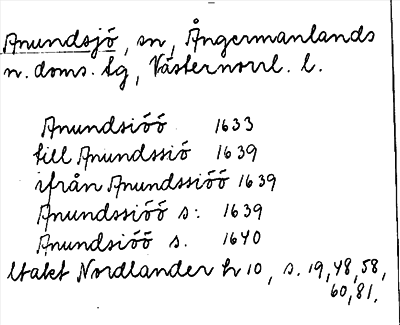 Anundsjö, sn, Ångermanlands
n. doms. tg, Västernorrl. l.
Anundsiöö 1633
till Anundssiö 1639
ifrån Anundssiöö 1639
Anundssiöö s: 1639
Anundsiöö s. 1640
Utakt Nordlander h 10, s. 19, 48, 58,
60, 81.